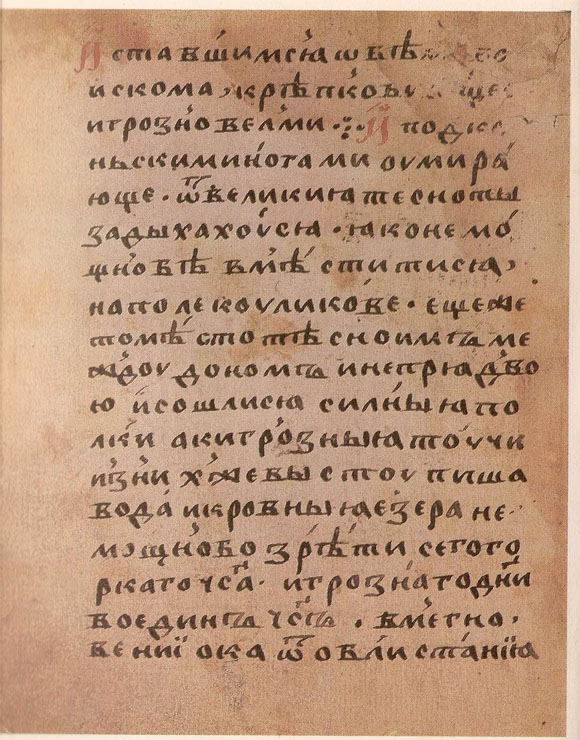 И ставшимсꙗ ѡбѣ
искома, крѣпко
и грозно велми ·:· И под
ньскими ногами оумира
юще · ѿ великиꙗ тесноты
задыхахоусꙗ · ꙗко не мо
щно бѣ вмѣститисꙗ,
на поле коуликове · еще же
томѣсто тѣсно имъ ме
ждоу дономъ и непрꙗдво
ю и сошлисꙗ силныꙗ по
лки аки грозныꙗ тоучи
изни хже выстоупиша
вода и кровныꙗ езера не
мощно бо зрѣти сего го
ркаго чса · и грознаго дни
во единъ чсъ · вмегно,
вениї ока ѿ облистаниꙗ